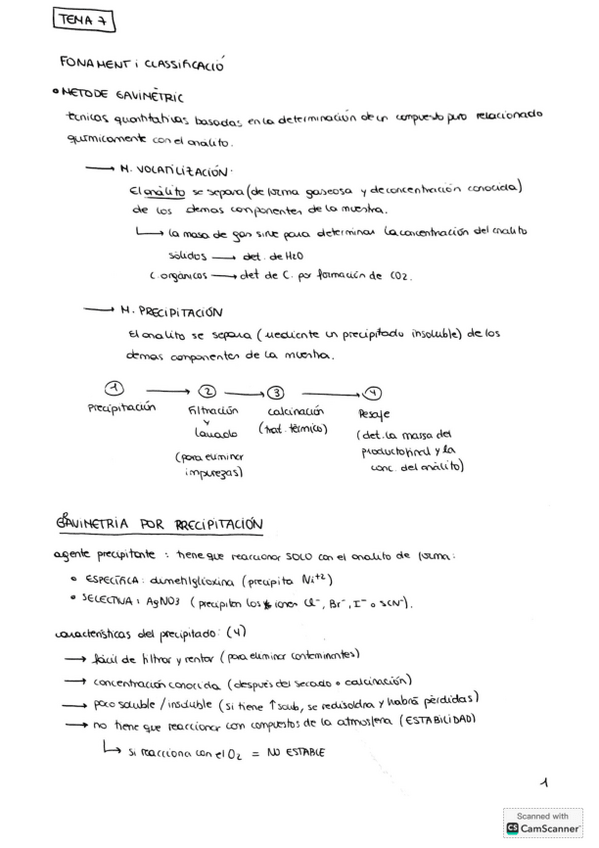 TEMA 7
FONAMENT i CLASSIFICACIÓ
• METODE GAVIMÈTRIC
tècnicas quantitativas basadas en la determinación de un compuesto puro relacionado
quimicamente con el analito.
→ M. VOLATILIZACIÓN.
El análito se separa (de forma gaseosa y de concentración conocida)
de los demas componentes de la muestra.
↳ la masa de gas sirve para determinar la concentración del analito
sólidos → det. de H2O
C. orgànicos → det de C. por formación de CO2.
→ M. PRECIPITACIÓN
El analito se separa (mediente un precipitado insoluble) de los
demas componentes de la muestra.
① → ② → ③ → ④
Precipitación filtración calcinación Pesaje
y (trat. térmico) (det. la massa del
lavado producto final y la
(para eliminar conc. del análito)
impurezas)
GAVIMETRIA POR PRECIPITACIÓN
agente precipitante : tiene que reaccionar SOLO con el analito de forma:
• ESPECÍFICA: dimetilglioxina (precipita Ni+2)
• SELECTIVA: AgNO3 (precipitan los iones Cl-, Br-, I- o SCN-).
características del precipitado: (4)
→ fácil de filtrar y rentar (para eliminar contaminantes)
→ concentración conocida (después del secado o calcinación)
→ poco soluble / insoluble (si tiene ↑ solub, se redisoldra y habrá pérdidas)
→ no tiene que reaccionar con compuestos de la atmosfera (ESTABILIDAD)
↳ si reacciona con el O2 = NO ESTABLE
1
Scanned with
CS CamScanner